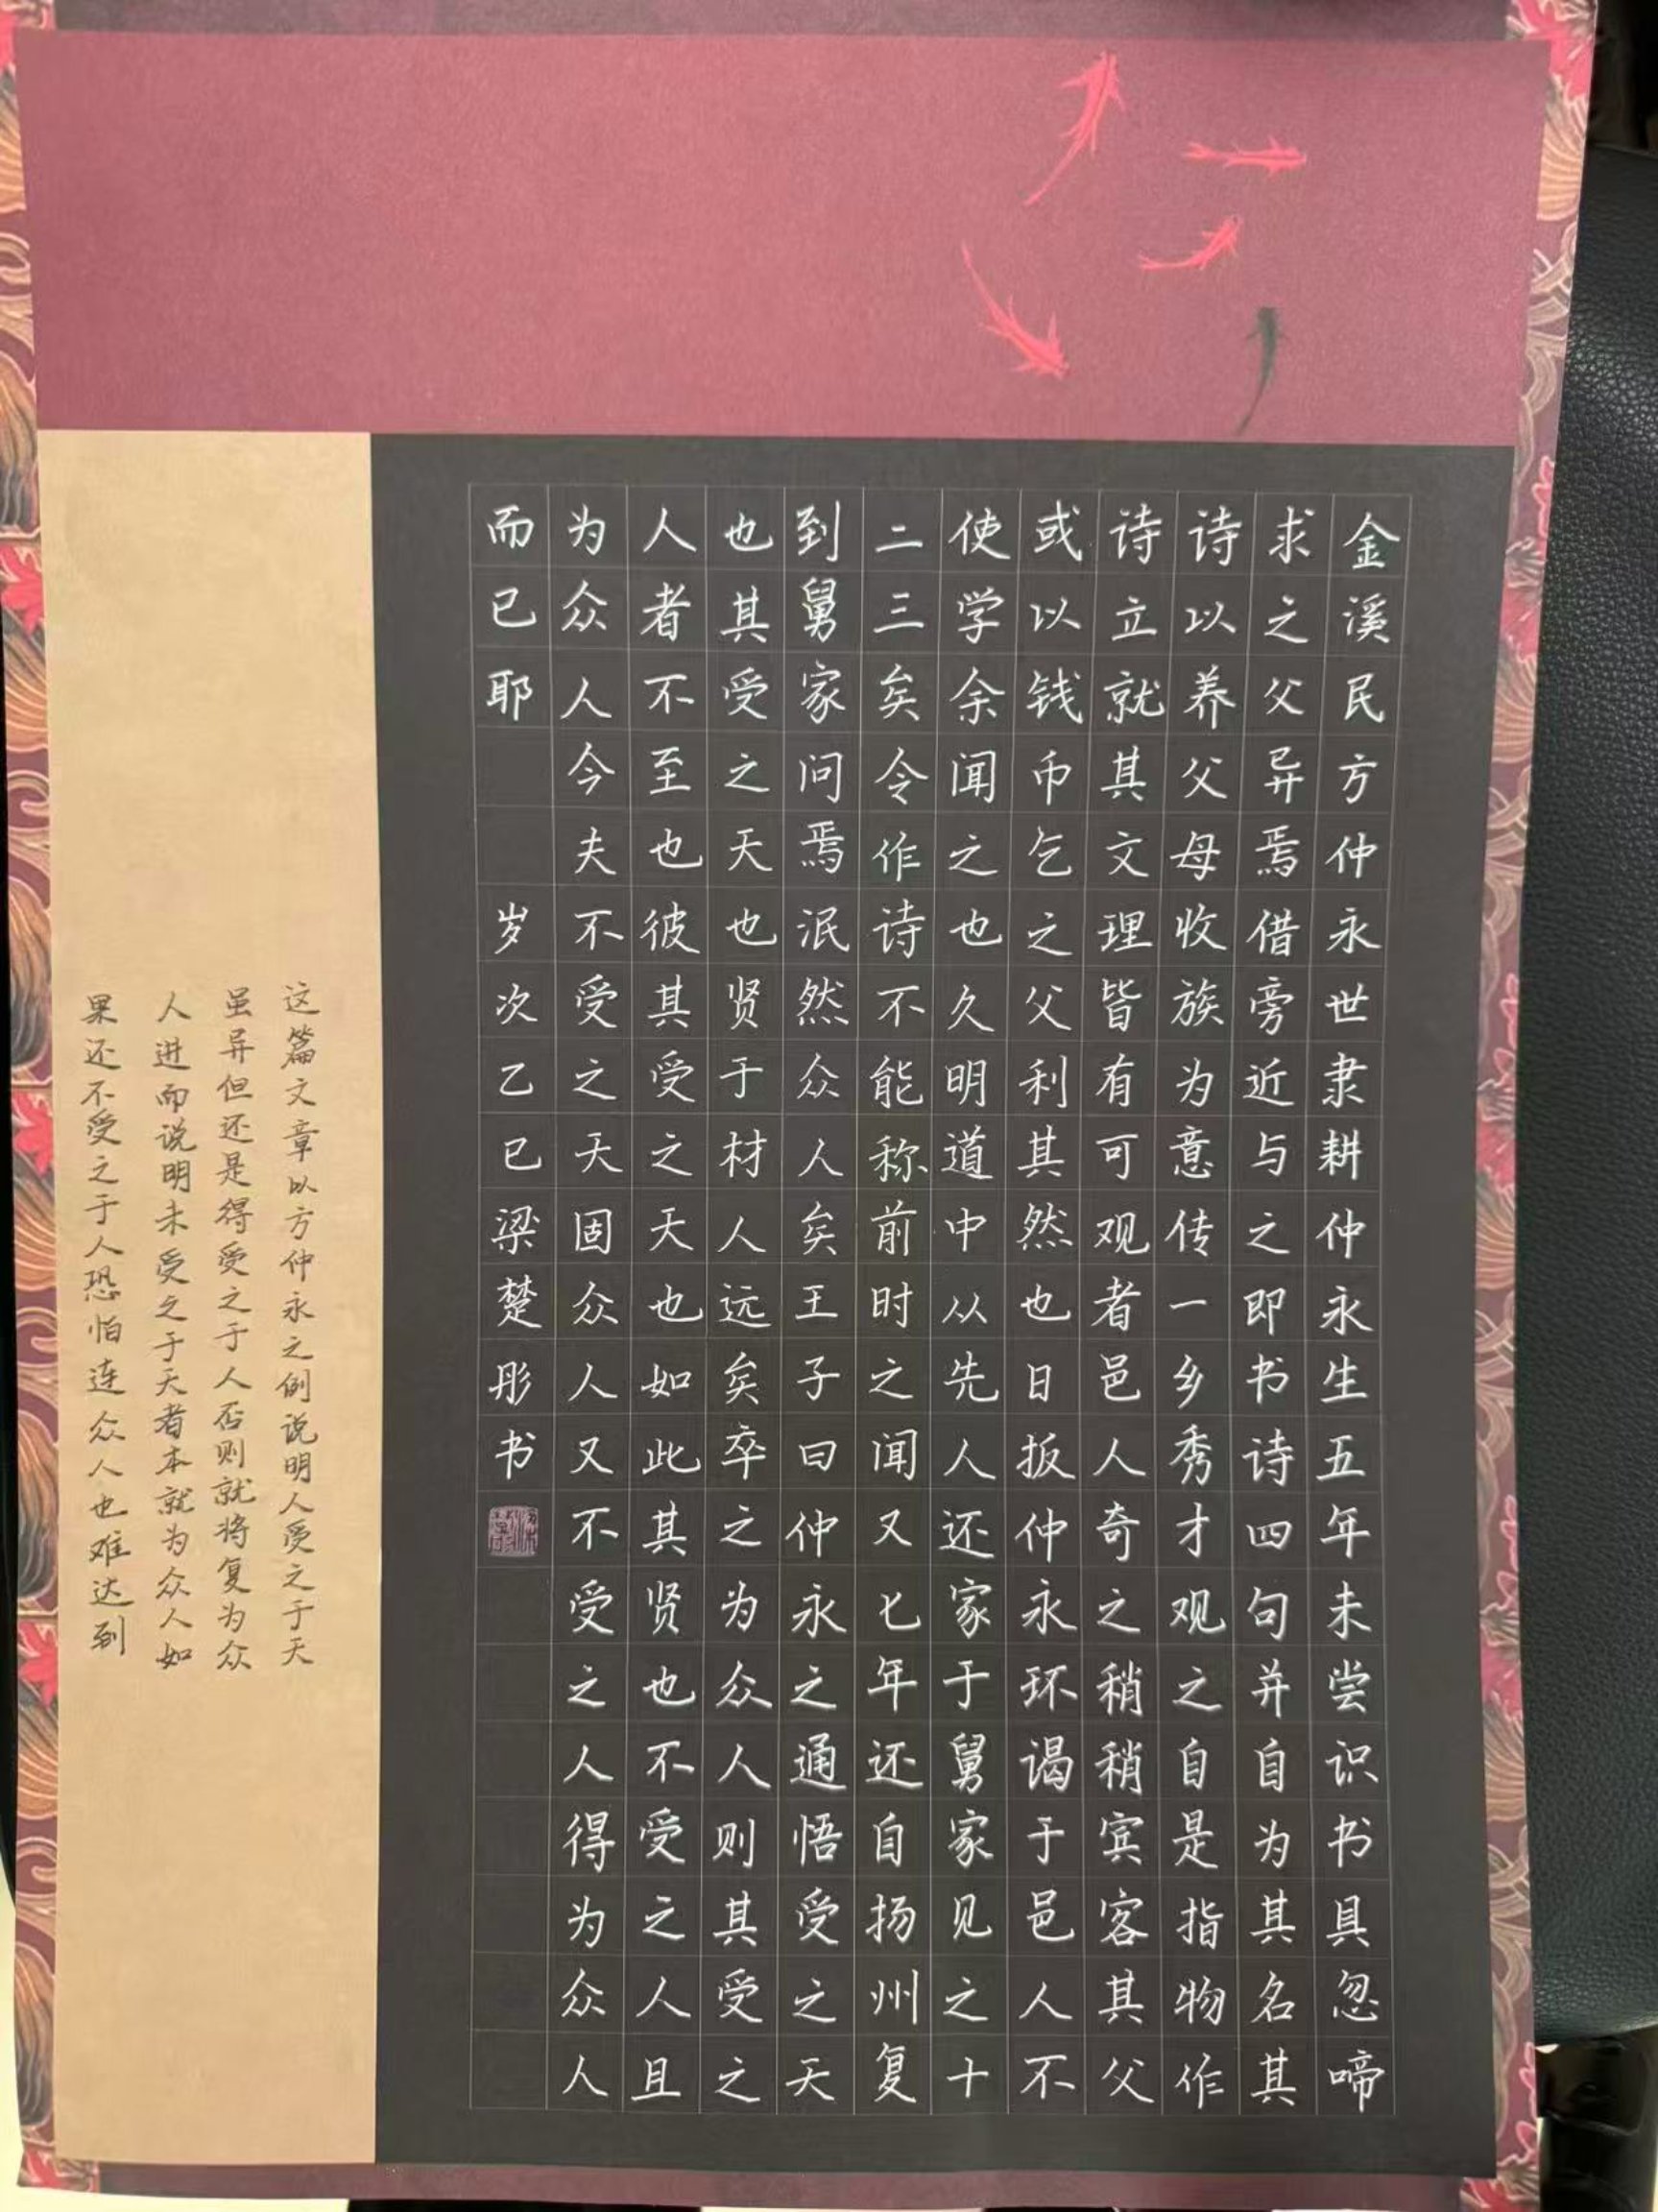 金溪民方仲永世隶耕仲永生五年未尝识书具忽啼
求之父异焉借旁近与之即书诗四句并自为其名其
诗以养父母收族为意传一乡秀才观之自是指物作
诗立就其文理皆有可观者邑人奇之稍稍宾客其父
或以钱币乞之父利其然也日扳仲永环谒于邑人不
使学余闻之也久明道中从先人还家于舅家见之十
二三矣令作诗不能称前时之闻又七年还自扬州复
到舅家问焉泯然众人矣王子曰仲永之通悟受之天
也其受之天也贤于材人远矣卒之为众人则其受之
人者不至也彼其受之天也如此其贤也不受之人且
为众人今夫不受之天固众人又不受之人得为众人
而已耶 岁次乙巳梁楚彤书
这篇文章以方仲永之例说明人受之于天
虽异但还是得受之于人否则就将复为众
人进而说明未受之于天者本就为众人如
果还不受之于人恐怕连众人也难达到